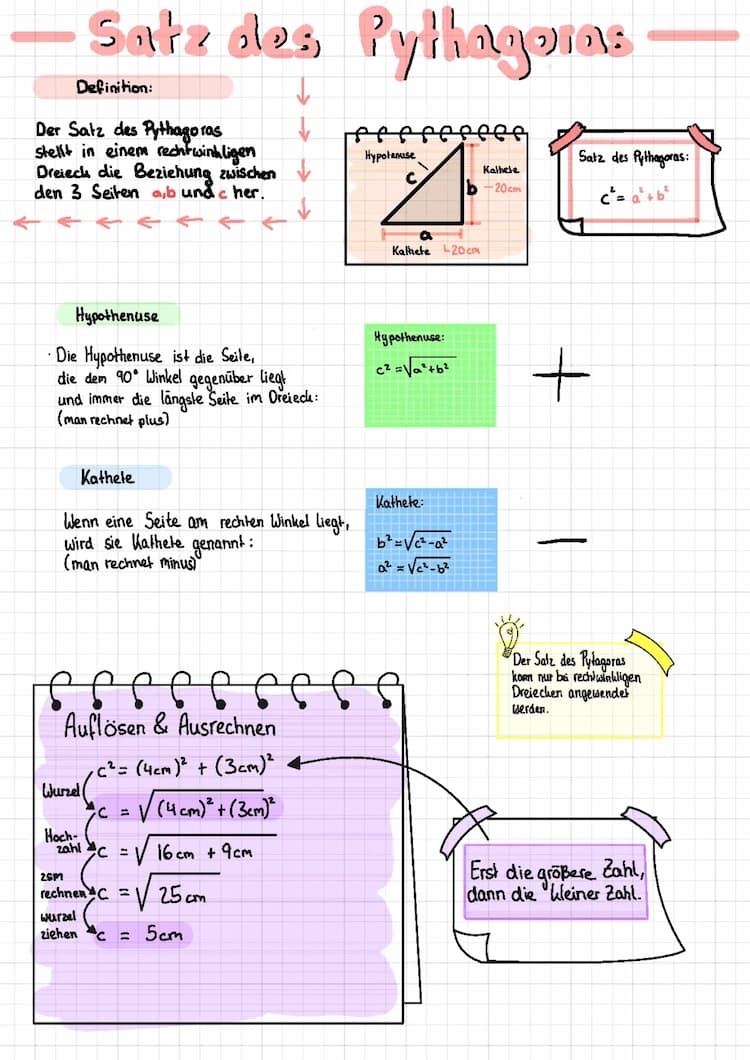 Satz des Pythagoras
Definition:
Der Satz des Pythagoras
stellt in einem rechtwinkligen
Dreieck die Beziehung zwischen
den 3 Seiten a,b und c her.
Hypotenuse
c
b
Kathete
- 20cm
a
Kathete ↳20cm
Satz des Pythagoras:
c² = a² + b²
Hypothenuse
· Die Hypothenuse ist die Seite,
die dem 90° Winkel gegenüber liegt
und immer die längste Seite im Dreieck:
(man rechnet plus)
Hypothenuse:
c² = √a² + b²
+
Kathete
Wenn eine Seite am rechten Winkel liegt,
wird sie Kathete genannt:
(man rechnet minus)
Kathete:
b² = √c² - a²
a² = √c² - b²
-
Der Satz des Pytagoras
kann nur bei rechtwinkligen
Dreiecken angewendet
werden.
Auflösen & Ausrechnen
c² = (4cm)² + (3cm)²
Wurzel
c = √(4cm)² + (3cm)²
Hoch-
zahl
c = √16cm + 9cm
zsm
rechnen
c = √25cm
wurzel
ziehen
c = 5cm
Erst die größere Zahl,
dann die kleiner Zahl.